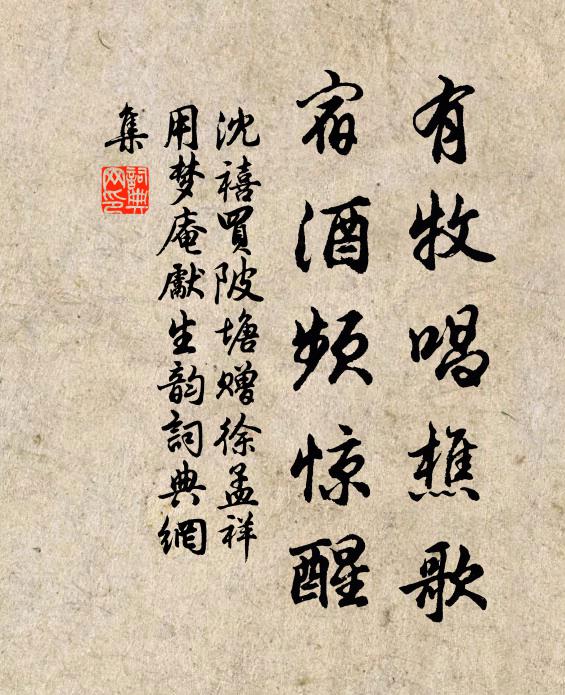 有牧唱樵歌
宿酒频惊醒
沈禧買陂塘贈徐孟祥
用梦庵獻生韵詞典網
集
詞典
网印